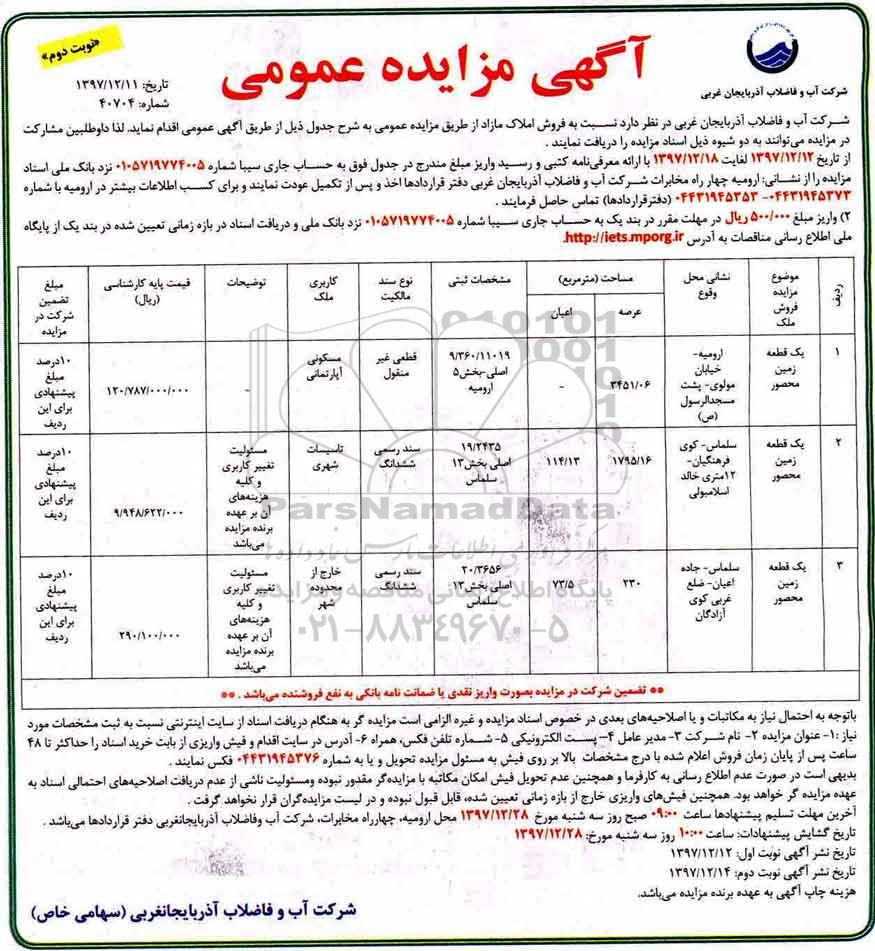 «نوبت دوم»
آگهی مزایده عمومی
شرکت آب و فاضلاب آذربایجان غربی
تاریخ: ۱۳۹۷/۱۲/۱۱
شماره: ۴۰۷۰۴
شرکت آب و فاضلاب آذربایجان غربی در نظر دارد نسبت به فروش املاک مازاد از طریق مزایده عمومی به شرح جدول ذیل از طریق آگهی عمومی اقدام نماید. لذا داوطلبین مشارکت
در مزایده می‌توانند به دو شیوه ذیل اسناد مزایده را دریافت نمایند .
از تاریخ ۱۳۹۷/۱۲/۱۲ لغایت ۱۳۹۷/۱۲/۱۸ با ارائه معرفی‌نامه کتبی و رسید واریز مبلغ مندرج در جدول فوق به حساب جاری سیبا شماره ۰۱۰۵۷۱۹۷۷۴۰۰۵ نزد بانک ملی اسناد
مزایده را از نشانی: ارومیه چهار راه مخابرات شرکت آب و فاضلاب آذربایجان غربی دفتر قراردادها اخذ و پس از تکمیل عودت نمایند و برای کسب اطلاعات بیشتر در ارومیه با شماره
۰۴۴۳۱۹۴۵۳۷۳- ۰۴۴۳۱۹۴۵۳۵۳ (دفترقراردادها) تماس حاصل فرمایند .
۲) واریز مبلغ ۵۰۰/۰۰۰ ریال در مهلت مقرر در بند یک به حساب جاری سیبا شماره ۰۱۰۵۷۱۹۷۷۴۰۰۵ نزد بانک ملی و دریافت اسناد در بازه زمانی تعیین شده در بند یک از پایگاه
ملی اطلاع رسانی مناقصات به آدرس http://iets.mporg.ir.
ردیف | موضوع مزایده فروش ملک | نشانی محل وقوع | مساحت (مترمربع) عرصه | اعیان | مشخصات ثبتی | نوع سند مالکیت | کاربری ملک | توضیحات | قیمت پایه کارشناسی (ریال) | مبلغ تضمین شرکت در مزایده
۱ | یک قطعه زمین محصور | ارومیه- خیابان مولوی- پشت مسجدالرسول (ص) | ۳۴۵۱/۰۶ | - | ۹/۳۶۰/۱۱۰۱۹ اصلی-بخش۵ ارومیه | قطعی غیر منقول | مسکونی آپارتمانی | - | ۱۲۰/۷۸۷/۰۰۰/۰۰۰ | ۱۰درصد مبلغ پیشنهادی برای این ردیف
۲ | یک قطعه زمین محصور | سلماس- کوی فرهنگیان- ۱۲متری خالد اسلامبولی | ۱۷۹۵/۱۶ | ۱۱۴/۱۳ | ۱۹/۲۴۳۵ اصلی بخش۱۳ سلماس | سند رسمی ششدانگ | تاسیسات شهری | مسئولیت تغییر کاربری و کلیه هزینه‌های آن بر عهده برنده مزایده می‌باشد | ۹/۹۴۸/۶۲۲/۰۰۰ | ۱۰درصد مبلغ پیشنهادی برای این ردیف
۳ | یک قطعه زمین محصور | سلماس- جاده اعیان- ضلع غربی کوی آزادگان | ۲۳۰ | ۷۳/۵ | ۲۰/۳۶۵۶ اصلی بخش۱۳ سلماس | سند رسمی ششدانگ | خارج از محدوده شهر | مسئولیت تغییر کاربری و کلیه هزینه‌های آن بر عهده برنده مزایده می‌باشد | ۲۹۰/۱۰۰/۰۰۰ | ۱۰درصد مبلغ پیشنهادی برای این ردیف
ParsNamadData
پایگاه اطلاع رسانی مناقصه و مزایده
۰۲۱-۸۸۳۴۹۶۷۰-۵
** تضمین شرکت در مزایده بصورت واریز نقدی یا ضمانت نامه بانکی به نفع فروشنده می‌باشد . **
باتوجه به احتمال نیاز به مکاتبات و یا اصلاحیه‌های بعدی در خصوص اسناد مزایده و غیره الزامی است مزایده گر به هنگام دریافت اسناد از سایت اینترنتی نسبت به ثبت مشخصات مورد
نیاز :۱- عنوان مزایده ۲- نام شرکت ۳- مدیر عامل ۴- پست الکترونیکی ۵- شماره تلفن فکس، همراه ۶- آدرس در سایت اقدام و فیش واریزی از بابت خرید اسناد را حداکثر تا ۴۸
ساعت پس از پایان زمان فروش اعلام شده با درج مشخصات بالا بر روی فیش به مسئول مزایده تحویل و یا به شماره ۰۴۴۳۱۹۴۵۳۷۶ فکس نمایند .
بدیهی است در صورت عدم اطلاع رسانی به کارفرما و همچنین عدم تحویل فیش امکان مکاتبه با مزایده‌گر مقدور نبوده ومسئولیت ناشی از عدم دریافت اصلاحیه‌های احتمالی اسناد به
عهده مزایده گر خواهد بود. همچنین فیش‌های واریزی خارج از بازه زمانی تعیین شده، قابل قبول نبوده و در لیست مزایده‌گران قرار نخواهد گرفت .
آخرین مهلت تسلیم پیشنهادها ساعت ۰۹:۰۰ صبح روز سه شنبه مورخ ۱۳۹۷/۱۲/۲۸ محل ارومیه، چهارراه مخابرات، شرکت آب وفاضلاب آذربایجانغربی دفتر قراردادها می‌باشد .
تاریخ گشایش پیشنهادات: ساعت ۱۰:۰۰ روز سه شنبه مورخ: ۱۳۹۷/۱۲/۲۸
تاریخ نشر آگهی نوبت اول: ۱۳۹۷/۱۲/۱۲
تاریخ نشر آگهی نوبت دوم: ۱۳۹۷/۱۲/۱۴
هزینه چاپ آگهی به عهده برنده مزایده می‌باشد.
شرکت آب و فاضلاب آذربایجانغربی (سهامی خاص)